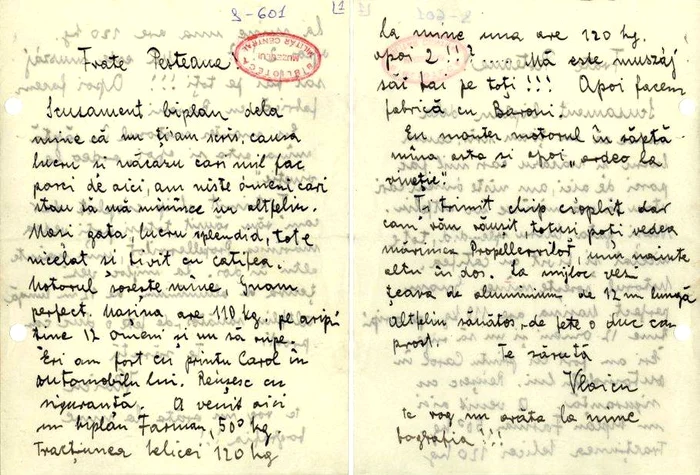 S-601
1
Frate Pesteana!
BIBLIOTECA
MUZEULUI
MILITAR CENTRAL
Scusament biplan dela
mine că nu ți-am scris, causa
lucru si năcazu cari mil fac
porci de aici, am niste ómeni cari
stau să mă mînînce în altfeliu.
Mași gata, lucru splendid, tot e
nicelat si livit cu catifea.
Motorul soseste mîne, Gnom
perfect. Mașina are 110 kg. pe aripi
tîne 12 ómeni și nu să rupe.
Eri am fost cu printu Carol în
automobilu lui. Reușesc cu
siguranță. A venit aici
un biplan Farman, 500 kg.
Tracțiunea helicei 120 kg
la mine una are 120 kg.
apoi 2 !!? .... Mă este muszáj
săi bat pe toți !!! Apoi facem
fabrică cu Baroni.
Eu montez motorul în săptă
mîna asta si apoi „ardeo la
Ți trimit chip cioplit dar
cam răm răusit, totusi poti vedea
mărimea Propellerilor, unu nainte
altu în dos. La mijloc vezi
țeava de aluminium de 12 m lungă
Altfeliu sănătos, de fete o duc cam
prost.
Te sărută
Vlaicu
te rog nu arăta la nime
fografia !!!